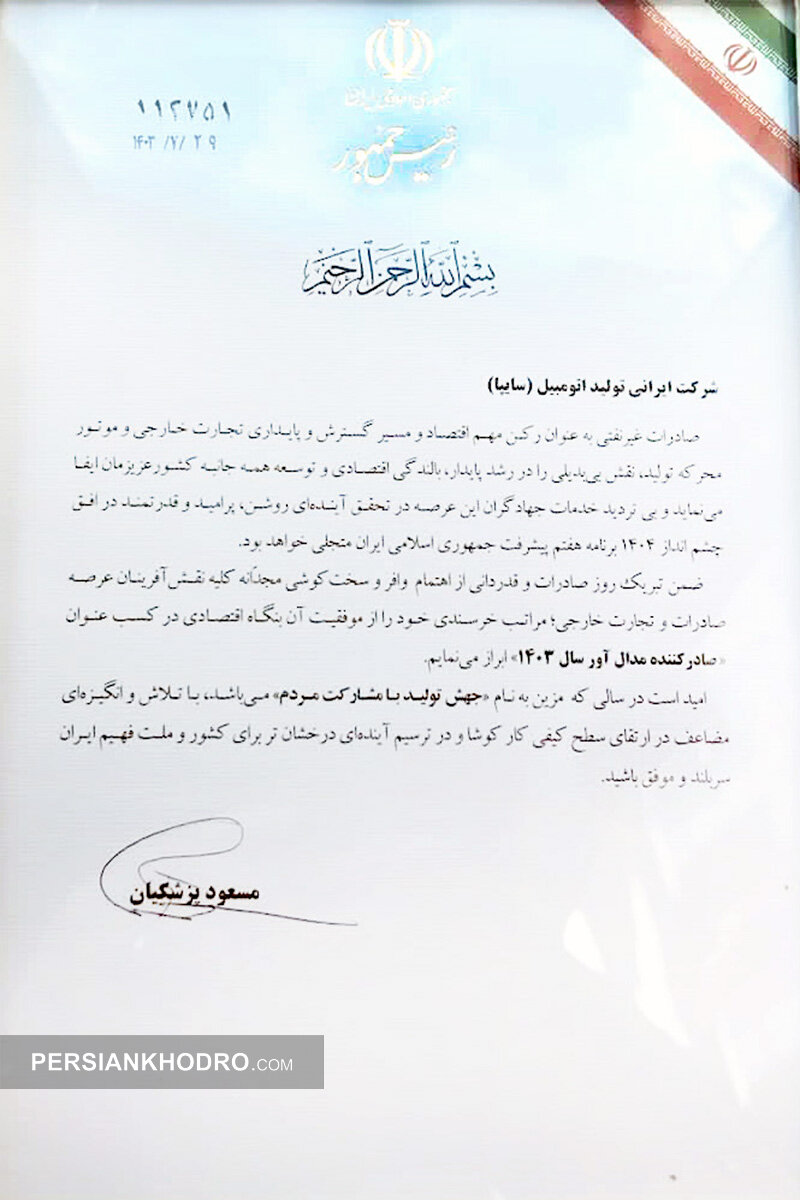 جمهوری اسلامی ایران
رئیس جمهور
۱۱۲۷۵۱
۱۴۰۳/۷/۲۹
بسم الله الرحمن الرحیم
شرکت ایرانی تولید اتومبیل (سایپا)
صادرات غیرنفتی به عنوان رکن مهم اقتصاد و مسیر گسترش و پایداری تجارت خارجی و موتور
محرکه تولید، نقش بی‌بدیلی را در رشد پایدار، بالندگی اقتصادی و توسعه همه جانبه کشورعزیزمان ایفا
می‌نماید و بی تردید خدمات جهادگران این عرصه در تحقق آینده‌ای روشن، پرامید و قدرتمند در افق
چشم انداز ۱۴۰۴ برنامه هفتم پیشرفت جمهوری اسلامی ایران متجلی خواهد بود.
ضمن تبریک روز صادرات و قدردانی از اهتمام وافر و سخت‌کوشی مجدّانه کلیه نقش‌آفرینان عرصه
صادرات و تجارت خارجی؛ مراتب خرسندی خود را از موفقیت آن بنگاه اقتصادی در کسب عنوان
«صادرکننده مدال آور سال ۱۴۰۳» ابراز می‌نمایم.
امید است در سالی که مزین به نام «جهش تولید با مشارکت مردم» می‌باشد، با تلاش و انگیزه‌ای
مضاعف در ارتقای سطح کیفی کار کوشا و در ترسیم آینده‌ای درخشان تر برای کشور و ملت فهیم ایران
سربلند و موفق باشید.
مسعود پزشکیان
PERSIANKHODRO.COM